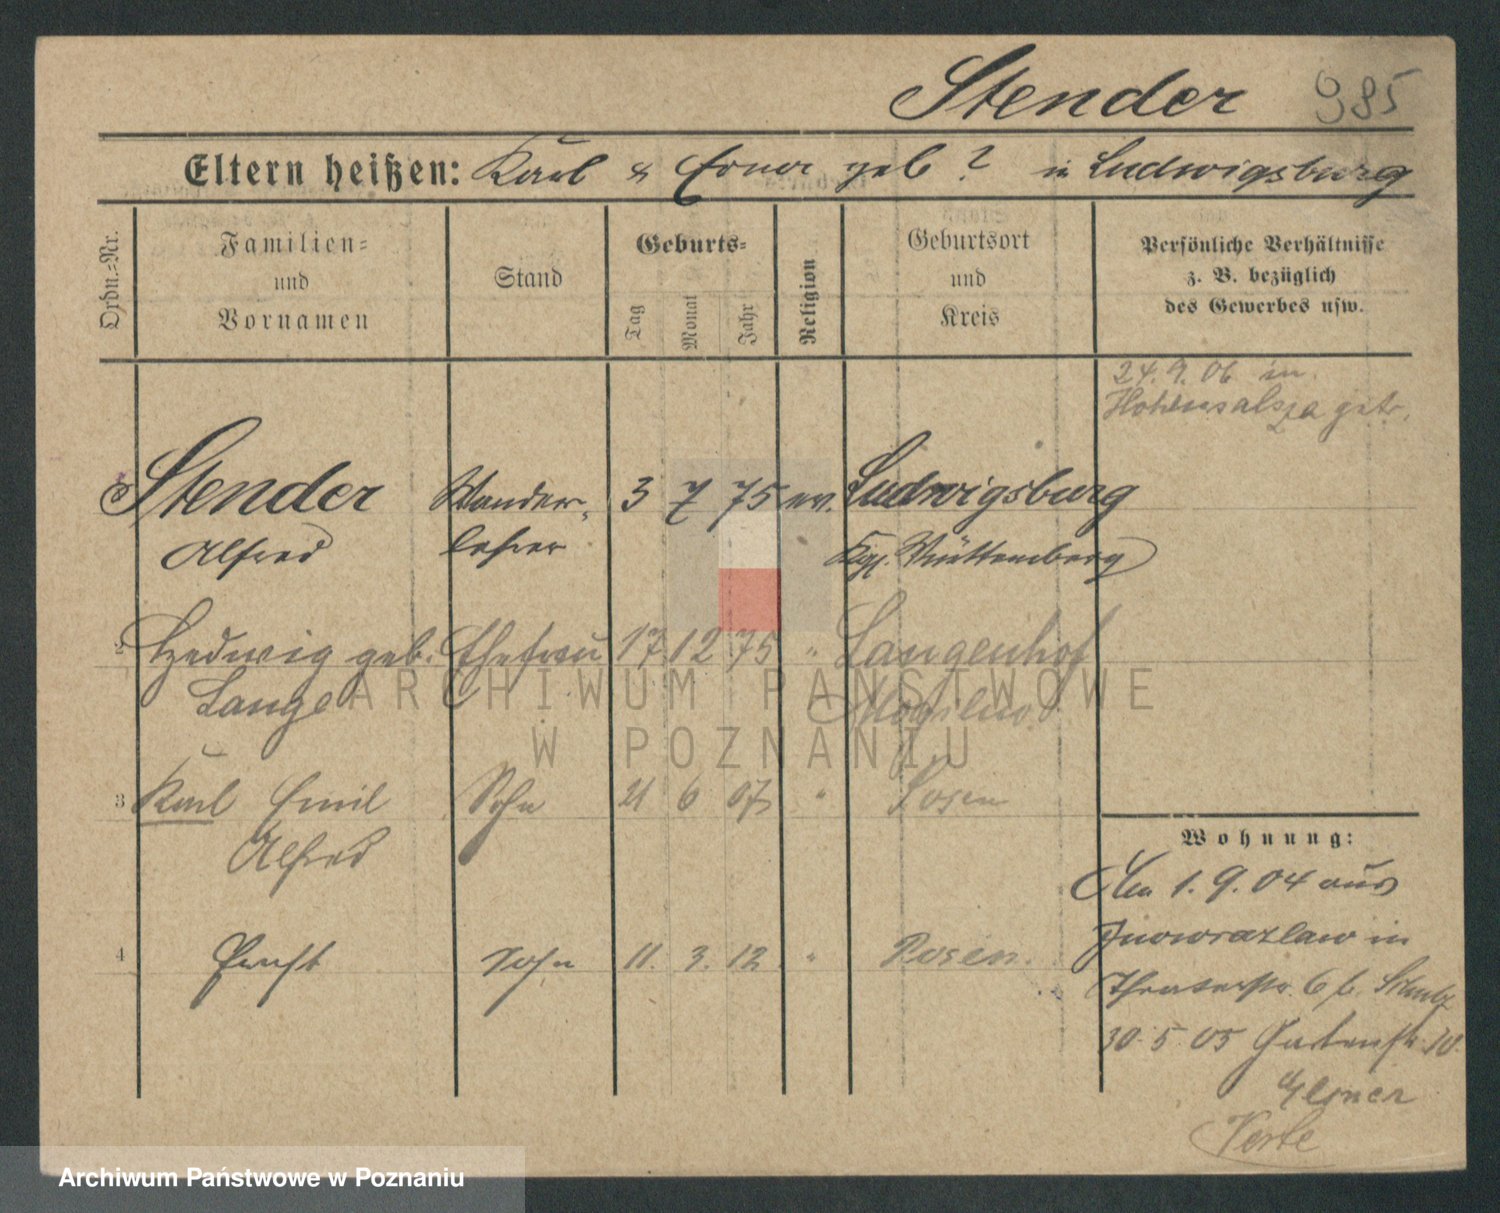 Stender 985
Eltern heißen: Karl & Erner geb ? in Ludwigsburg
Ordn.=Nr.
Familien=
und
Vornamen
Stand
Geburts=
Tag
Monat
Jahr
Religion
Geburtsort
und
Kreis
Persönliche Verhältnisse
z. B. bezüglich
des Gewerbes usw.
24. 9. 06 in
Hohensalza getr.
Stender Wander- 3 7 75 ev. Ludwigsburg
Alfred lehrer Kgr. Württemberg
2 Hedwig geb. Ehefrau 17 12 75 " Langenhof
Lange Mogilno
3 Karl Emil Sohn 21 6 07 " Posen
Alfred
4 Ernst Sohn 11. 3. 12 " Posen.
Wohnung:
Am 1. 9. 04 aus
Inowrazlaw in
Theaterstr. 6 b.
30. 5 05 Gartenstr. 10.
Verte
ARCHIWUM PAŃSTWOWE
W POZNANIU
Archiwum Państwowe w Poznaniu